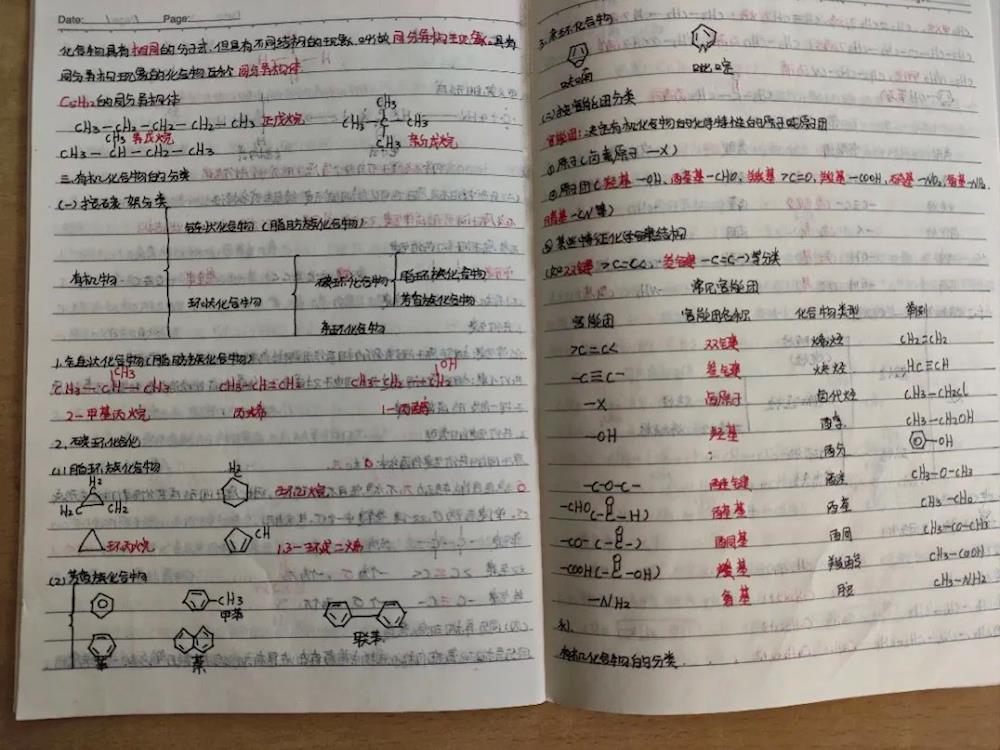 Date: Page:
化合物具有相同的分子式,但具有不同结构的现象,叫做同分异构现象,具有
同分异构现象的化合物互称同分异构体
C5H12的同分异构体
CH3-CH2-CH2-CH2-CH3 正戊烷
CH3
CH3-C-CH3
CH3 新戊烷
CH3 异戊烷
CH3-CH-CH2-CH3
二.有机化合物的分类
(一)按碳架分类
链状化合物(脂肪族化合物)
有机物
环状化合物
碳环化合物
脂环族化合物
芳香族化合物
杂环化合物
1.链状化合物(脂肪族化合物)
CH3 OH
CH3-CH-CH3 CH3-CH=CH2 CH3-CH2-CH2
2-甲基丙烷 丙烯 1-丙醇
2.碳环化合
(1)脂环族化合物
H2 H2
H2C CH2 环己烷
环丙烷 CH 1,3-环戊二烯
(2)芳香族化合物
-CH3
甲苯
联苯
苯 萘
3.杂环化合物
呋喃 吡啶
(二)按官能团分类
官能团:决定有机化合物的化学特性的原子或原子团
①原子(卤素原子 -X)
②原子团(羟基-OH、醛基-CHO、羰基>C=O、羧基-COOH、硝基-NO2、氨基-NH2
腈基-CN等)
③某些特征化学键结构
(如双键>C=C<、叁键-C≡C-)等分类
常见官能团
官能团 官能团名称 化合物类型 举例
>C=C< 双键 烯烃 CH2=CH2
-C≡C- 叁键 炔烃 HC≡CH
-X 卤原子 卤代烃 CH3-CH2Cl
-OH 羟基 醇 CH3-CH2OH
酚 -OH
-C-O-C- 醚键 醚 CH3-O-CH3
-CHO(-C-H) 醛基 醛 CH3-CHO
-CO-(-C-) 酮基 酮 CH3-CO-CH3
-COOH(-C-OH) 羧基 羧酸 CH3-COOH
-NH2 氨基 胺 CH3-NH2
有机化合物的分类